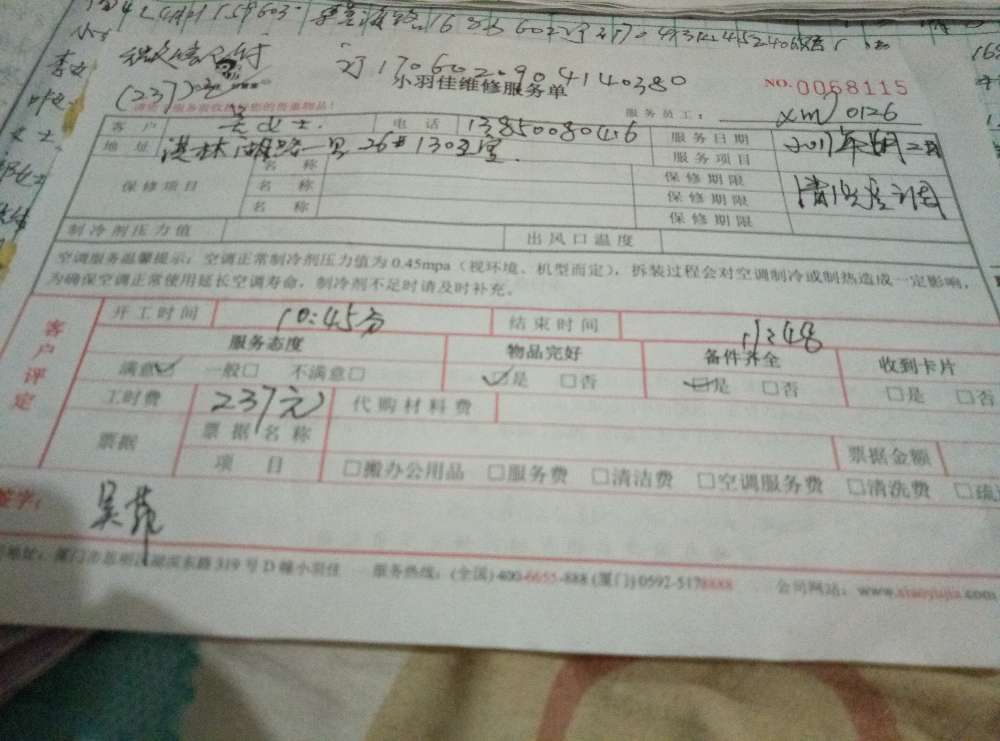 微信支付
订1706020904140380
(237)元
小羽佳维修服务单
NO.0068115
请您于服务前收拾好您的贵重物品!
服务员工: xm 0126
客户 吴女士. 电话 13850080416 服务日期
地址 洪林湖路一号 26# 1303室. 服务项目 清洗空调
保修项目 名称 保修期限
名称 保修期限
名称 保修期限
制冷剂压力值 出风口温度
空调服务温馨提示:空调正常制冷剂压力值为0.45mpa(视环境、机型而定),拆装过程会对空调制冷或制热造成一定影响,
为确保空调正常使用延长空调寿命,制冷剂不足时请及时补充。
客户评定
开工时间 10:45分 结束时间 11:48
服务态度 物品完好 备件齐全 收到卡片
满意☑ 一般□ 不满意□ ☑是 □否 ☑是 □否 □是 □否
工时费 237元 代购材料费
票据 票据名称 票据金额
项目 □搬办公用品 □服务费 □清洁费 □空调服务费 □清洗费 □疏
签字: 吴
地址:厦门市思明区湖滨东路319号D幢小羽佳 服务热线:(全国)400-6655-888 (厦门)0592-5178888 公司网站:www.xiaoyujia.com